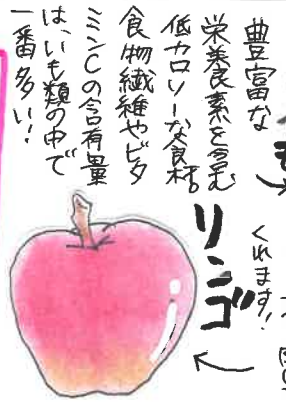 豊富な
栄養素を含む
低カロリーな食材。
食物繊維やビタ
ミンCの含有量
は、いも類の中で
一番多い！
くれます！
リンゴ